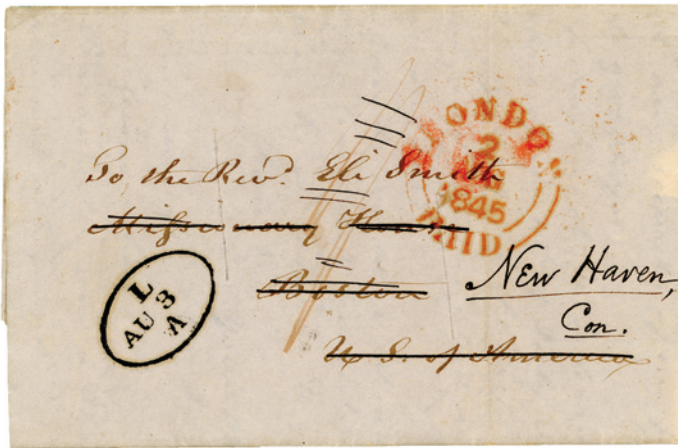 LONDON
2
AUG
1845
PAID
To, the Revd. Eli Smith
Missionary House
Boston
New Haven,
Con.
U S. of America
L
AU 3
A